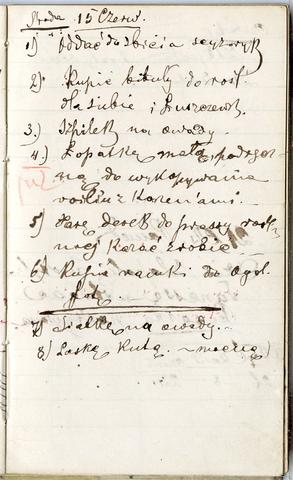 Środa 15 Czerw.
1) Oddać do zbicia scyzoryk
2) Kupić bibuły do rośl.
dla siebie i
3.) Szpilek na owady.
4.) Łopatkę małą
ną do wykopywania
roślin z korzeniami.
5) Parę derek do prassy rośl
nnej kazać zrobić
6) Kupić do
7) Siatkę na owady.
8) Laskę kutą. mocną)